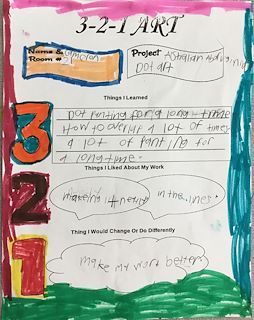 3-2-1 ART
Name & Cameron
Room #
Project Astralian Abo
Dot art
Things I Learned
3
Dot for a long time
How to a lot of times
a lot of for
a long time.
Things I Liked About My Work
2
Makeing it in the lines.
Thing I Would Change Or Do Differently
1
make my work better